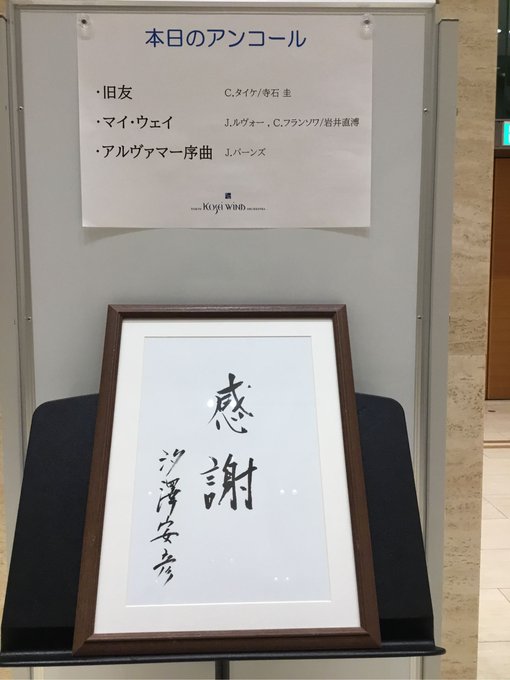 本日のアンコール
・旧友 C.タイケ/寺石 圭
・マイ・ウェイ J.ルヴォー , C.フランソワ/岩井直溥
・アルヴァマー序曲 J.バーンズ
TOKYO KOSEI WIND ORCHESTRA
感謝
汐澤安彦